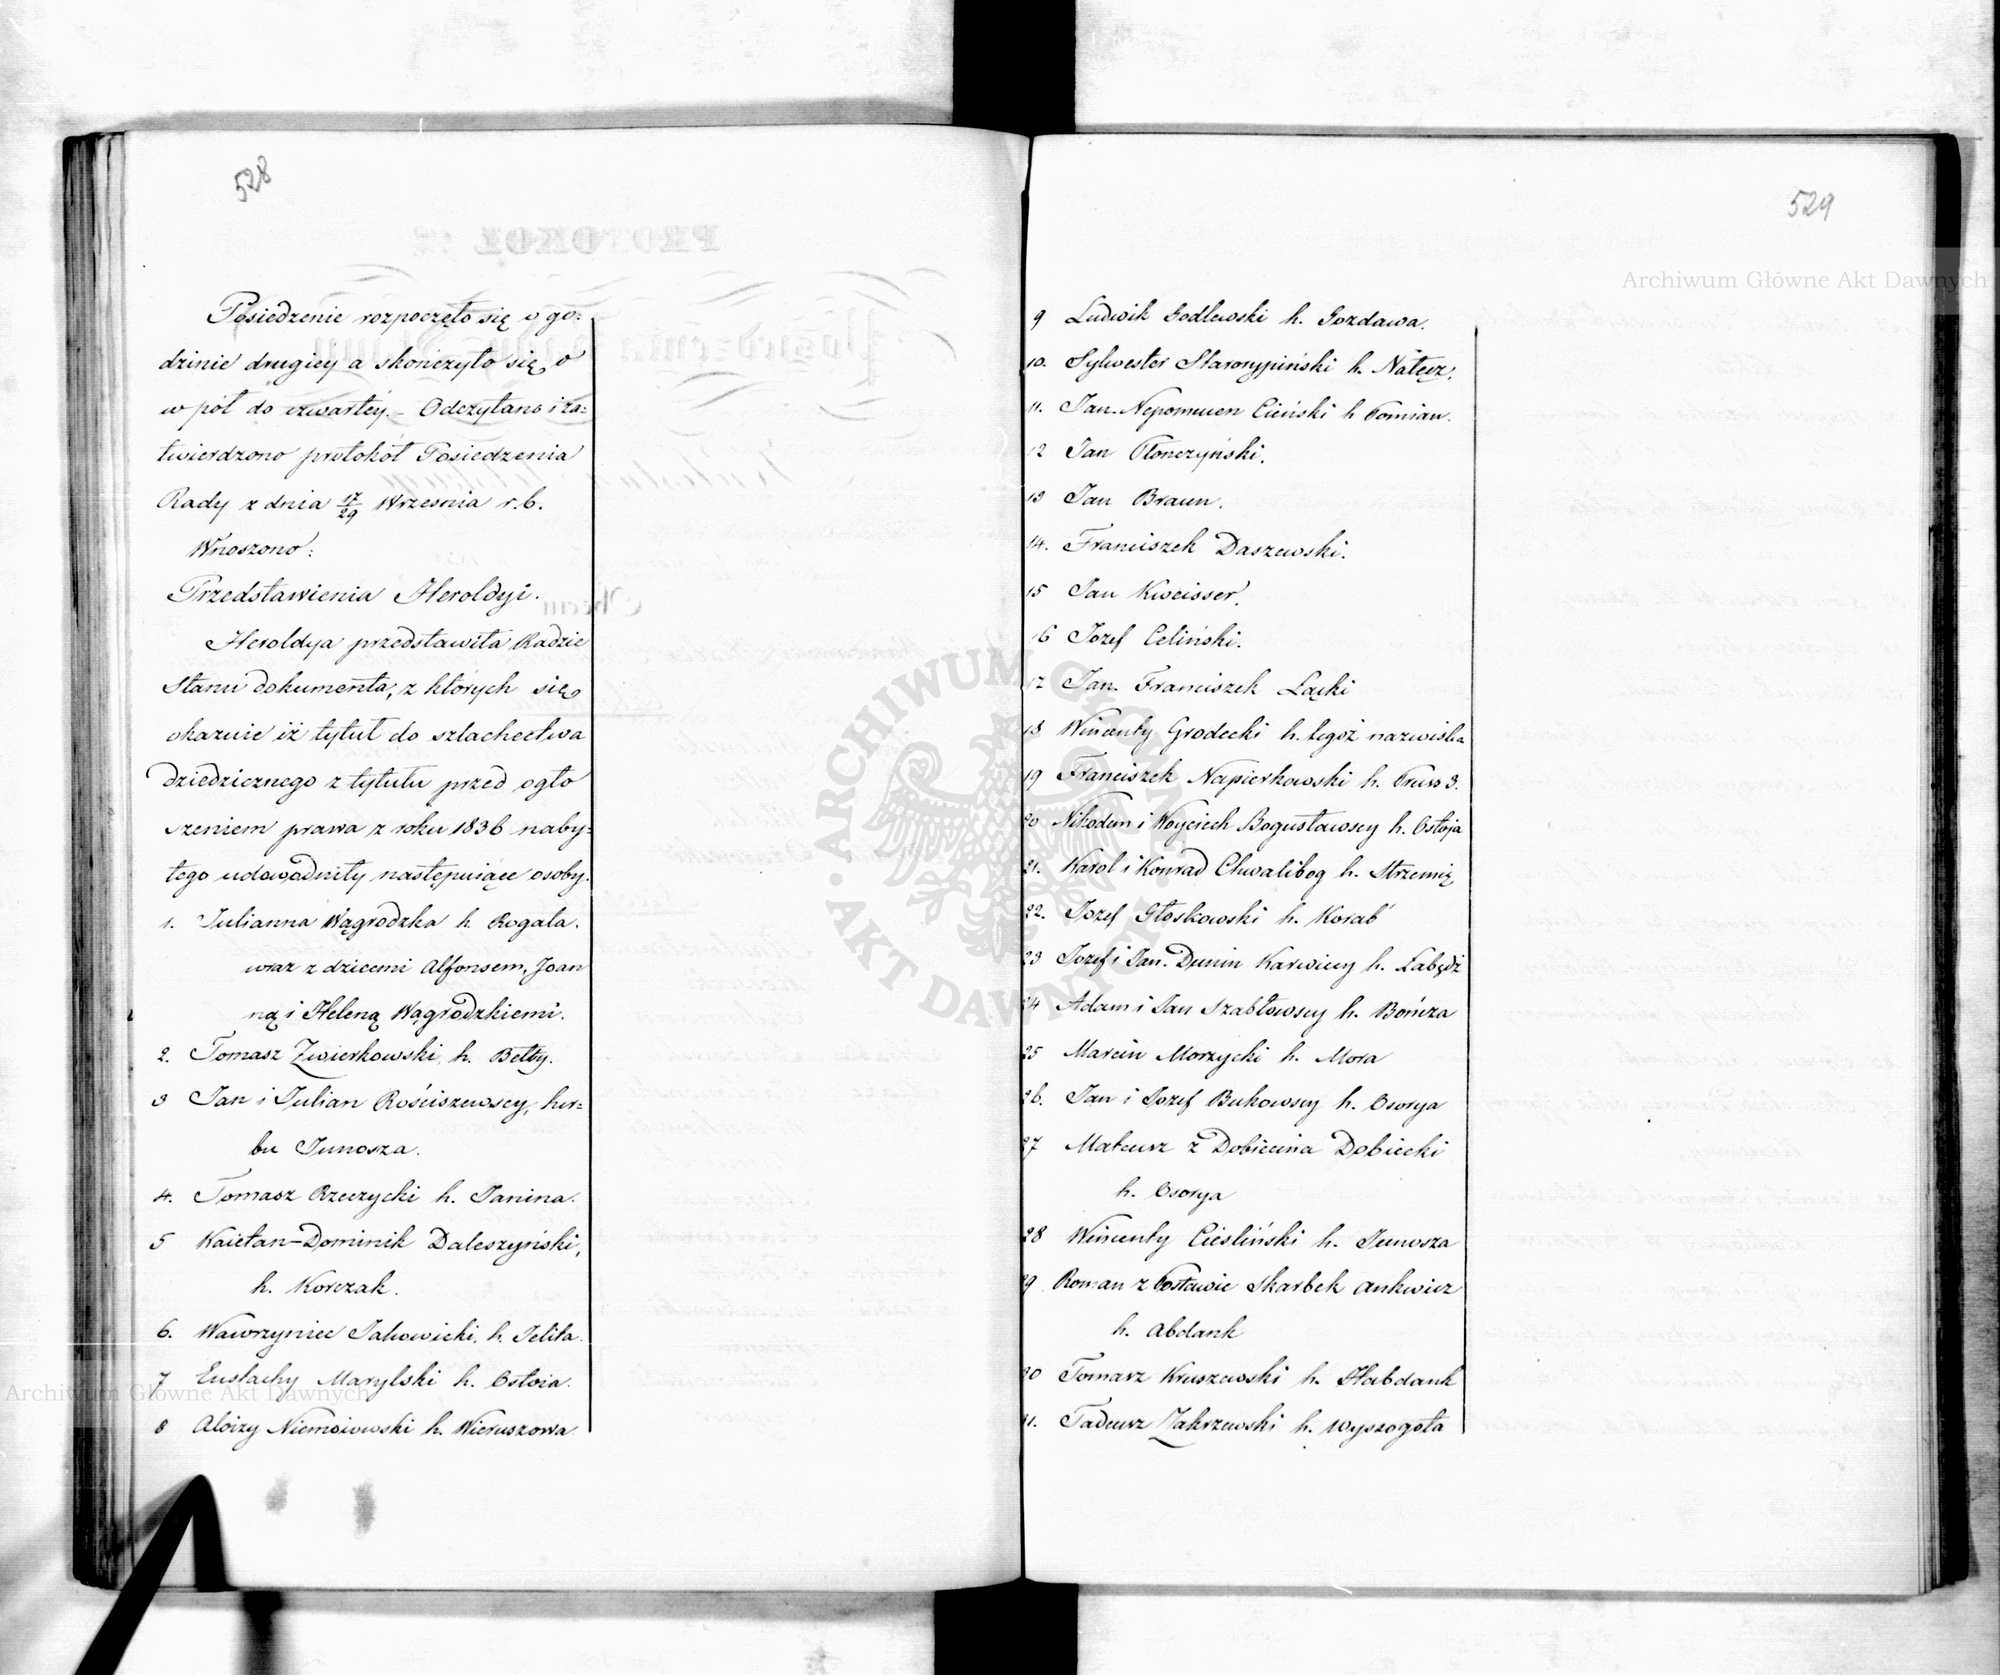 528
Posiedzenie rozpoczęło się o go=
dzinie drugiey a skończyło się o
w pół do czwartéy. – Odczytano i za=
twierdzono protokół Posiedzenia
Rady z dnia 17/29 Wrzesnia r. b.
Wnoszono:
Przedstawienia Heroldyi.
Heroldya przedstawiła Radzie
Stanu dokumenta, z których się
okazuie iż tytuł do szlachectwa
dziedzicznego z tytułu przed ogło
szeniem prawa z roku 1836 naby=
tego udowodniły następuiące osoby.
1. Julianna Wągrodzka h. Rogala.
wraz z dziećmi Alfonsem, Joan
ną i Heleną Wągrodzkiemi.
2. Tomasz Zwierkowski, h. Bełty.
3 Jan i Julian Rościszewscy, her=
bu Junosza.
4. Tomasz Rzeczycki h. Janina.
5 Kaietan–Dominik Daleszyński,
h. Korczak.
6. Wawrzyniec Jakowicki, h. Jelita.
7 Eustachy Marylski h. Ostoia.
8 Aloizy Niemoiowski h. Wieruszowa
529
Archiwum Główne Akt Dawnych
9 Ludwik Godlewski h. Gozdawa.
10. Sylwester Starorypiński h. Nałęcz.
11. Jan. Nepomucen Cieński h Pomian.
12 Jan Płonczyński.
13 Jan Braun.
14. Franciszek Daszewski.
15 Jan Kweisser.
16 Jozef Celiński.
17 Jan. Franciszek Łącki
18 Wincenty Grodecki h. tegoż nazwiska
19 Franciszek Napierkowski h. Pruss 3.
20 Nikodem i Woyciech Bogusławscy h. Ostoja
21. Karol i Konrad Chwalibog h. Strzemię
22. Jozef Głoskowski h. Korab
23 Jozef i Jan. Dunin Karwiccy h. Łabędź
24 Adam i Jan Szabłowscy h. Bończa
25 Marcin Morzycki h. Mora
26. Jan i Jozef Bukowscy h. Osorya
27 Mateusz z Dobiecina Dobiecki
h. Osorya
28 Wincenty Ciesliński h. Junosza
29 Roman z Posławic Skarbek Ankwicz
h. Abdank
30 Tomasz Kruszewski h. Habdank
31. Tadeusz Zakrzewski h. Wyssogota
ARCHIWUM GŁÓWNE
AKT DAWNYCH
Archiwum Główne Akt Dawnych